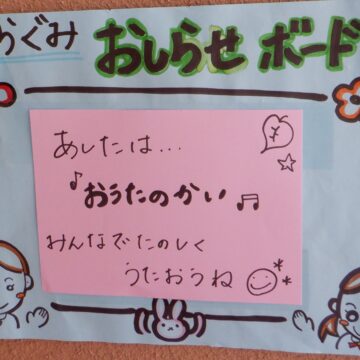 らぐみ おしらせ ボード
あしたは...
♪おうたのかい♫
みんなでたのしく
うたおうね